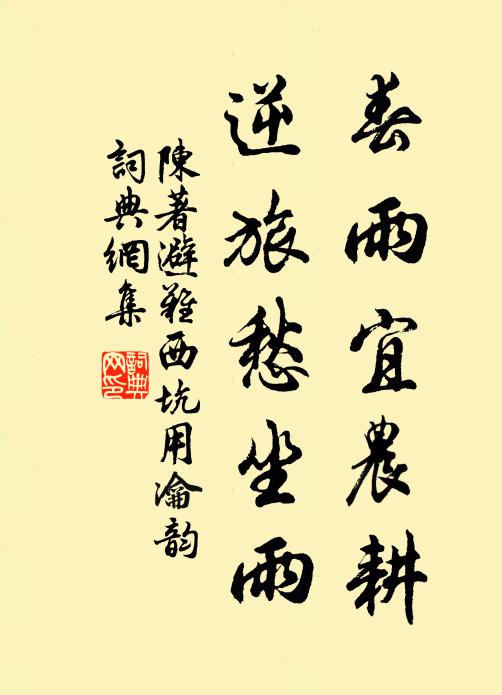 春雨宜農耕
逆旅愁坐雨
陳著避難西坑用瀹韵
詞典網集
詞典网印